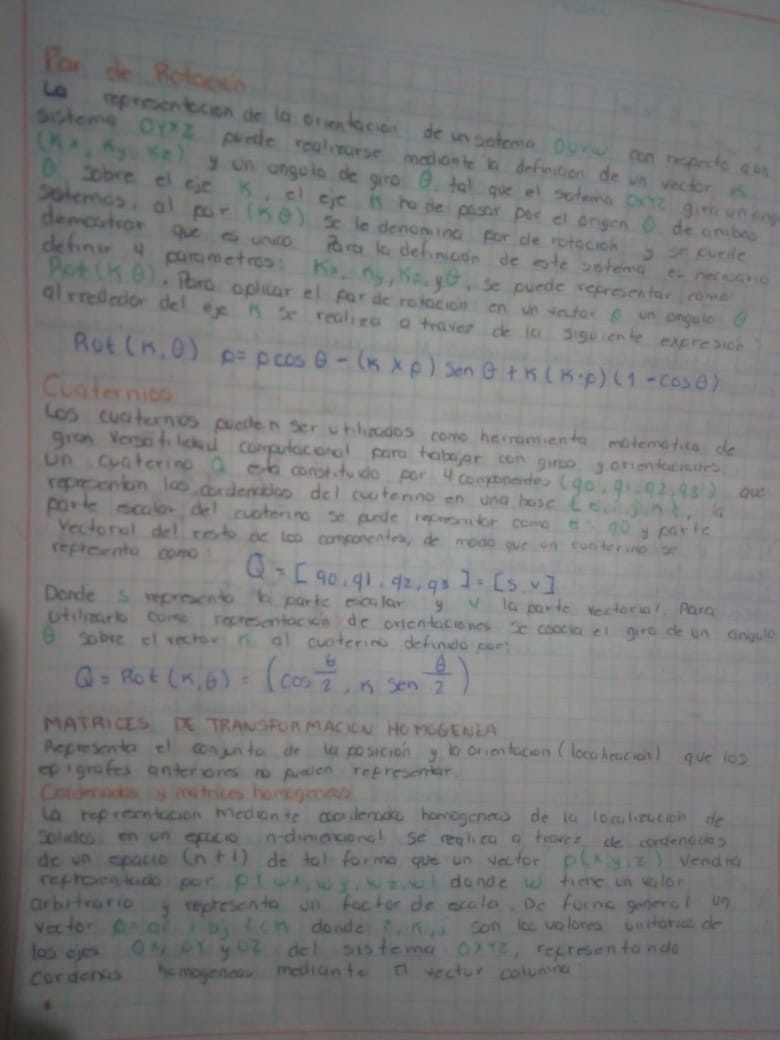 Par de Rotación
La representación de la orientación de un sistema OUVW con respecto a un
sistema OYXZ puede realizarse mediante la definición de un vector K
(Kx, Ky, Kz) y un angulo de giro θ, tal que el sistema OXYZ gira un ang
θ sobre el eje K, el eje K ha de pasar por el origen O de ambos
sistemas, al par (K θ) se le denomina par de rotación y se puede
demostrar que es unico. Para la definición de este sistema es necesario
definir 4 parametros: Kx, Ky, Kz, y θ, se puede representar como
Rot (K θ). Para aplicar el par de rotación en un vector p un angulo θ
alrrededor del eje K se realiza a traves de la siguiente expresion:
Rot (K, θ) p = p cos θ - (K x p) sen θ + K (K·p) (1 - cos θ)
Cuaternios
Los cuaternos pueden ser utilizados como herramienta matematica de
gran versatilidad computacional para trabajar con giros y orientaciones.
Un cuaterino Q esta constituido por 4 componentes (q0, q1, q2, q3) que
representan las cordenadas del cuaterino en una base la
parte escalar del cuaterino se puede representar como q0 y parte
vectorial del resto de los componentes, de modo que un cuaterino se
representa como:
Q = [q0, q1, q2, q3] = [s, v]
Donde s representa la parte escalar y v la parte vectorial. Para
utilizarlo como representación de orientaciones se coocia el giro de un angulo
θ sobre el vector K al cuaterino definido por:
Q = Rot (K, θ) = (cos θ/2, K sen θ/2)
MATRICES DE TRANSFORMACION HOMOGENIA
Representa el conjunto de la posición y la orientacion (localización) que los
epigrafes anteriores no pueden representar.
Cordenadas y matrices homogeneas
La representación mediante coordenadas homogeneas de la localización de
solidos en un espacio n-dimencional se realiza a travez de cordenadas
de un espacio (n+1) de tal forma que un vector p(x,y,z) vendra
representado por p(wx, wy, wz, w) donde w tiene un valor
arbitrario y representa un factor de escala. De forma general un
vector p = ai + bj + ck donde son los valores unitarios de
los ejes OX, OY y OZ del sistema OXYZ, representando
cordenas homogeneas mediante el vector columna: